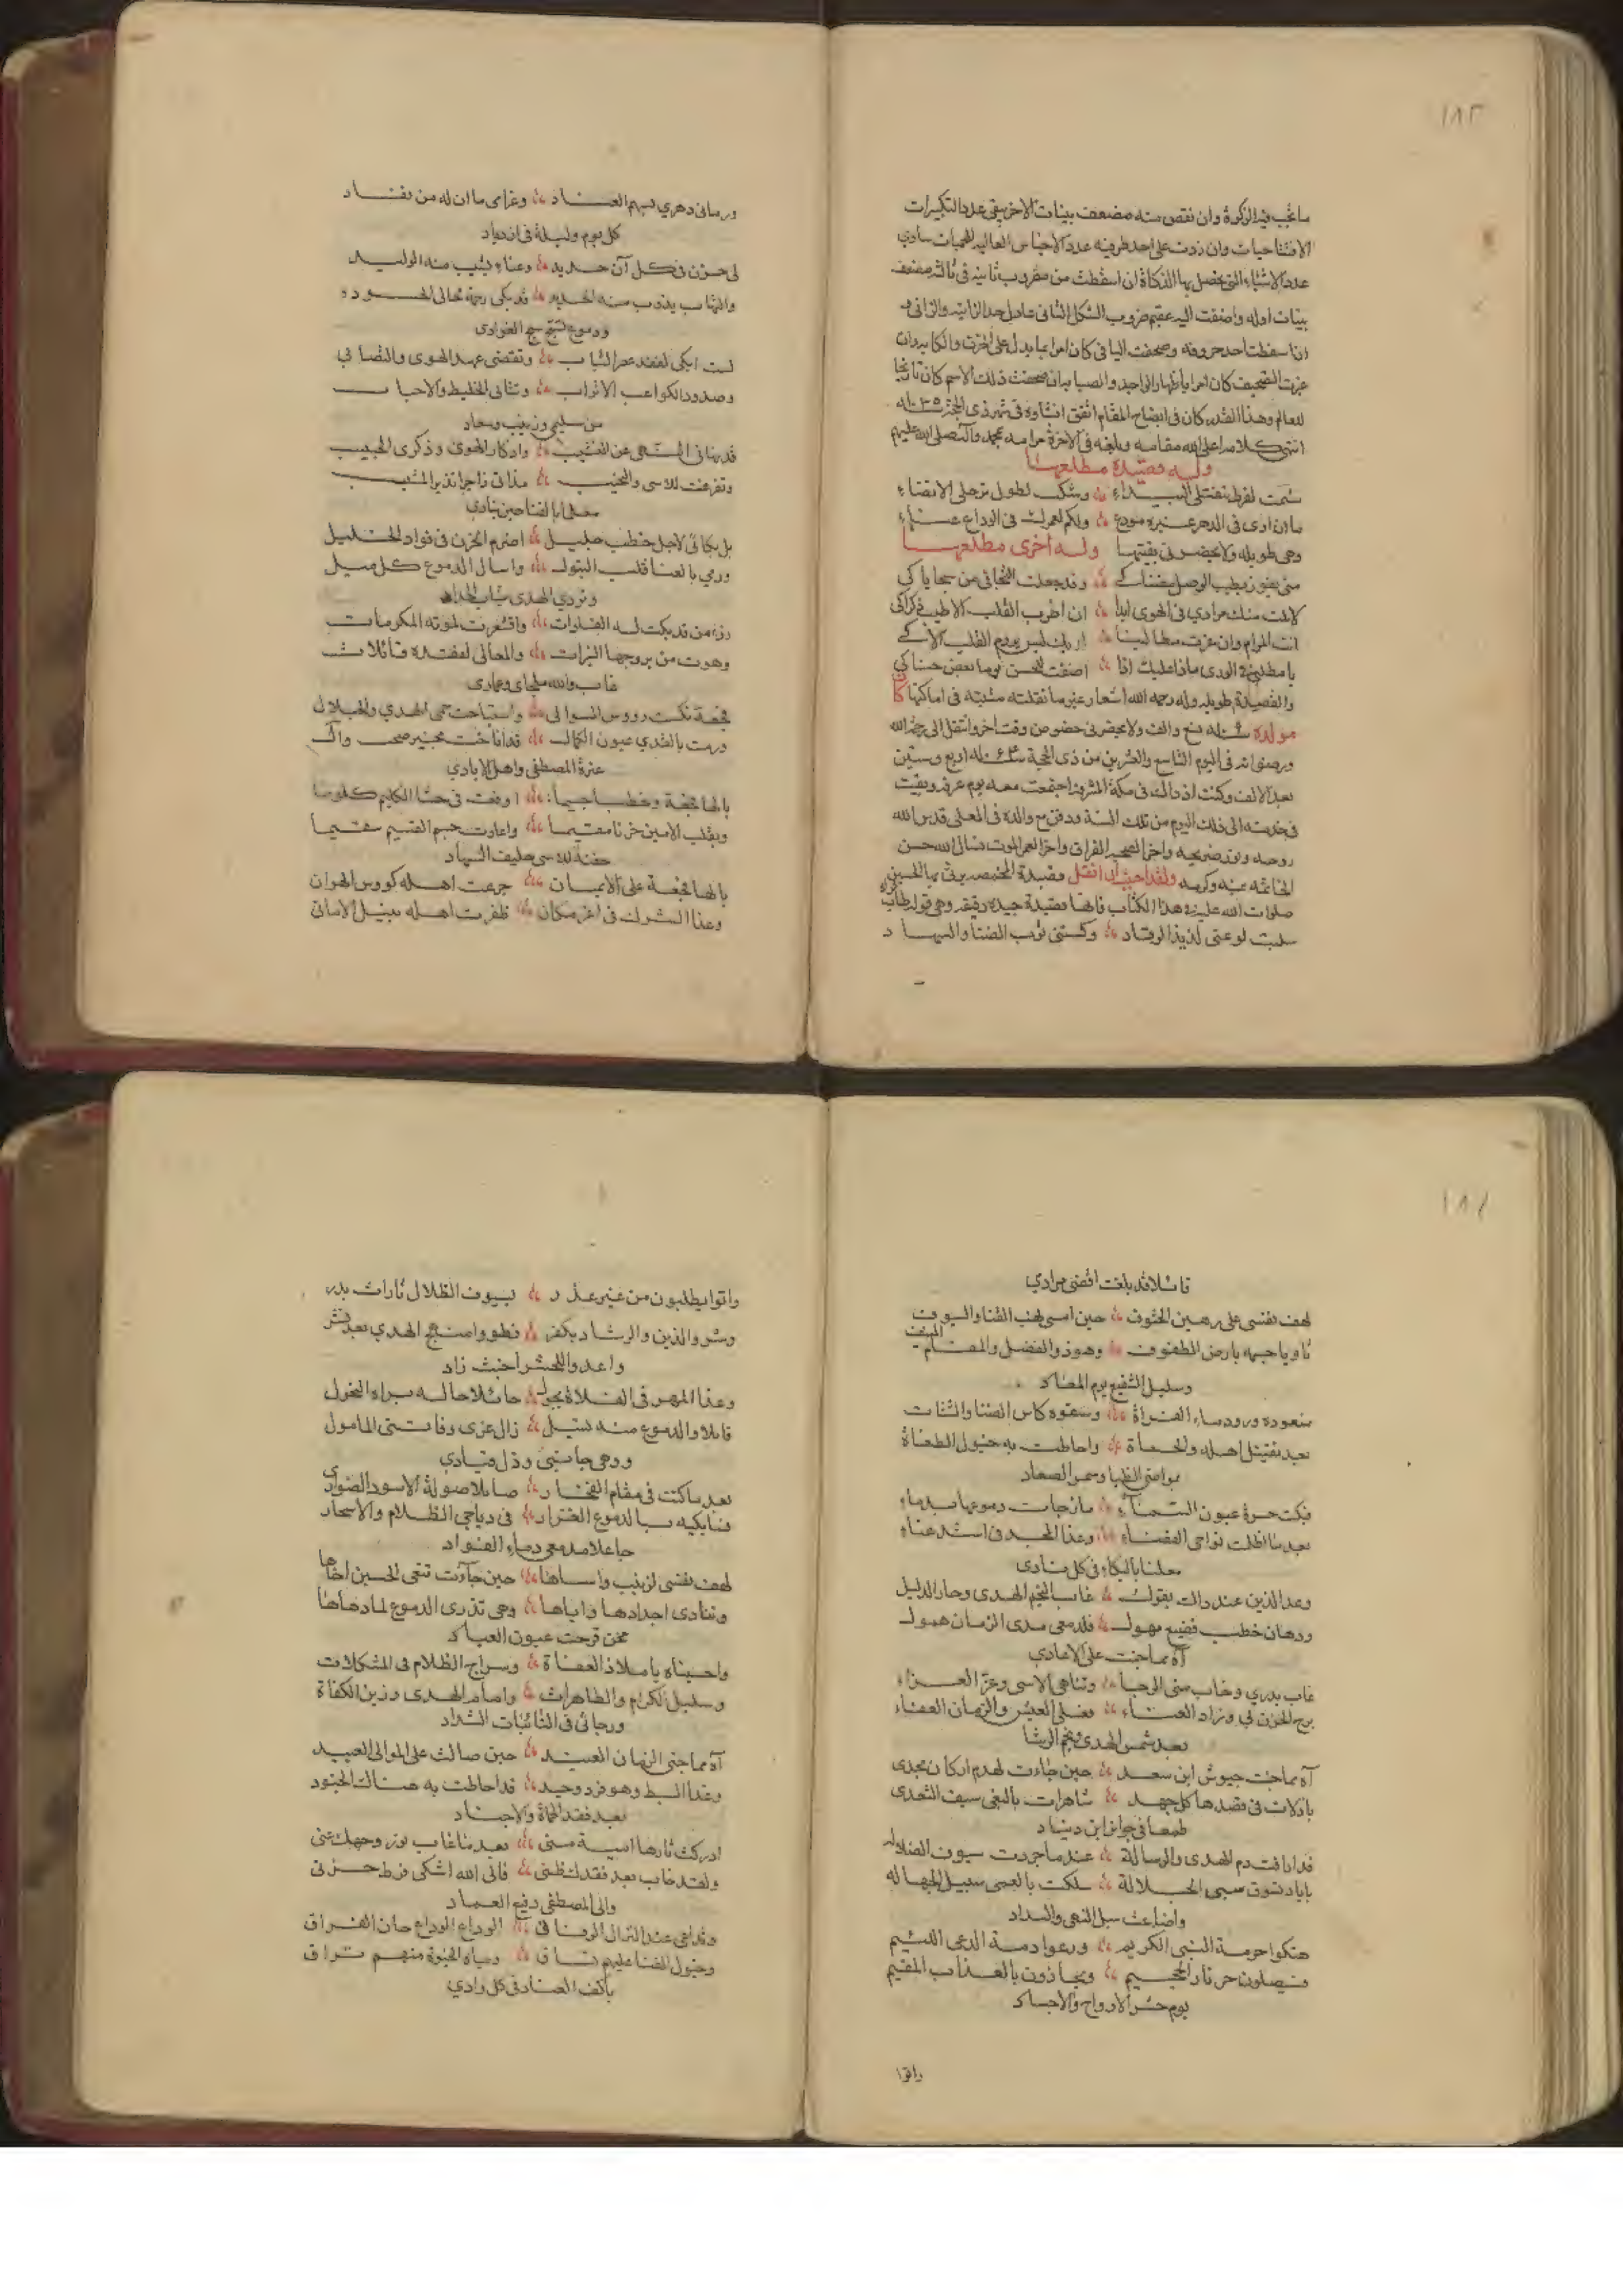 ١٨٣
ما تجب فيه الزكوة وان نقص منه مضعف بينات الاخر بقى عدد التكبيرات
الافتتاحيات وان زدت على احد طرفيه عدد الاجناس العاليه للحميات ساوى
عدد الاشياء التى تحصل بها الذكاة ان اسقطت من مضروب ثانيه فى ثالثه مضعف
بينات اوله واضفت اليه عقيم ضروب الشكل الثانى عادل حد الزانيه والزانى و
اذا سقطت احد حروفه وصحفت الباقى كان امرا بما يدل على الحزن والكابه وان
عزيت التصحيف كان امرا باظهار الواجد والصبابه وان صحفت ذلك الاسم كان تاريخا
للعالم وهذا القدر كان فى ايضاح المقام اتفق انشاوه فى شهر ذى الحجة ١٠٣٥ له
انتهى كلامه اعلى الله مقامه وبلغه فى الاخرة مرامه بمحمد وآله صلى الله عليهم
وله قصيدة مطلعها
سئمت لفرط تنقلى البيداء وشكت لطول ترحلى الانضاء
ما ان ارى فى الدهر غير مودع ولكم لعمرك فى الوداع عناء
وهى طويله ولا يحضرنى بقيتها وله اخرى مطلعها
متى يفوز بطيب الوصل مضناك وقد جعلت التجافى من سجاياك
لا نلت منك مرادي فى الهوى ابدا ان اطرب القلب الا طيب ذكراك
انت المرام وان عزت مطالبنا اياك ليس يروم القلب الاك
يا مطلبى فى الورى ماذا عليك اذا اضفت للحسن يوما بعض حسناك
والقصيدة طويله وله رحمه الله اشعار غير ما نقلته مثبته فى اماكنها كان
مولده سنه تسع والف ولا يحضرنى خصوص وقت اخر وانتقل الى رحمة الله
ورضوانه فى اليوم التاسع والعشرين من ذى الحجة سنه ١٠٦٤ له اربع وستين
بعد الالف وكنت اذ ذاك فى مكة المشرفة اجتمعت معه يوم عرفه وبقيت
فى خدمته الى ذلك اليوم من تلك السنة ودفن مع والده فى المعلى قدس الله
روحه ونور ضريحه واخر الصحبه الفراق واخر العمر الموت نسال الله حسن
الخاتمه بمنه وكرمه ولقد احببت ان انقل قصيدة الخمس يرثى بها الحسين
صلوات الله عليه فى هذا الكتاب فانها قصيدة جيدة رقيقه وهى قوله طاب ثراه
سلبت لوعتى لذيذ الرقاد وكستنى ثوب الضنا والسهاد
ورمانى دهري بسهم العناد وغرامى ما ان له من نفاد
كل يوم وليلة فى ازدياد
لى حزن فى كل آن جديد وعناء يشيب منه الوليد
والتهاب يذوب منه الحديد قد بكى رحمة لحالى الحسود
ودموع تسح سح الغوادى
لست ابكى لفقد عصر الشباب وتقضى عهد الهوى والتصابي
وصدود الكواعب الاتراب وتنائى الخليط والاحباب
من سليمى وزينب وسعاد
قد نهانى النهى عن التشبيب وادكار الهوى وذكرى الحبيب
وتفرغت للاسى والنحيب مذ اتى زاجرا نذير المشيب
معلنا بالفنا حين ينادي
بل بكائى لاجل خطب جليل اضرم الحزن فى فواد الخليل
ورمي بالعنا قلب البتول واسال الدموع كل مسيل
وتردي الهدى ثياب الحداد
رزء من قد بكت له الفلوات واقشعرت لموته المكرمات
وهوت من بروجها النيرات والمعالى لفقده قائلات
غاب والله ملجاى وعمادى
فجعة نكست رووس الموالى واستباحت حمى الهدي والجلال
ورمت بالقذي عيون الكمال قد اناخت بخير صحب وآل
عترة المصطفى واهل الايادي
يالها فجعة وخطبا جسيما اوقعت فى حشا الكليم كلوما
وبقلب الامين حزنا مقيما واعادت جسم القسيم سقيما
جفنه للاسى حليف السهاد
يالها فجعة على الايمان جرعت اهله كووس الهوان
وغدا الشرك فى اعز مكان ظفرت اهله بنيل الامانى
١٨٤
قائلا قد بلغت اقصى مرادي
لهف نفسى على رهين الحتوف حين امسى نهب القنا والسيوف
ثاويا جسمه بارض الطفوف وهو ذو الفضل والمقام المنيف
وسليل الشفيع يوم المعاد
منعوه ورود ماء الفرات وسقوه كاس الفنا والشتات
بعد تقتيل اهله والحماة واحاطت به خيول الطغاة
بمواضى الظبا وسمر الصعاد
فبكت حسرة عيون السماء مازجات دموعها بدماء
بعد ما اظلمت نواحى الفضاء وغدا المجد فى اشد عناء
معلنا بالبكاء فى كل نادى
وغد الدين عند ذاك يقول غاب نجم الهدى وحار الدليل
ودهان خطب فضيع مهول فلدمعى مدى الزمان همول
آه مما جنت على الاعادي
غاب بدري وخاب منى الرجاء وتناهى الاسى وعز العزاء
برح الحزن لي وزاد العناء فعلى العيش والزمان العفاء
بعد شمس الهدى ونجم الرشاد
آه مما جنت جيوش ابن سعد حين جاءت لهدم اركان مجدى
باذلات فى قصدها كل جهد شاهرات بالبغى سيف التعدى
طمعا فى جوائز ابن زياد
قد اباقت دم الهدى والرساله عندما جردت سيوف الضلاله
باياد تسوق سبى الجلالة سلكت بالعمى سبيل الجهاله
واضاعت سبل النهى والسداد
هتكوا حرمة النبى الكريم ورعوا ذمة الدعى اللئيم
فسيصلون حر نار الجحيم ويجازون بالعذاب المقيم
يوم حشر الارواح والاجساد
واتوا
واتوا يطلبون من غير عذر بسيوف الظلال ثارات بدر
وشروا الدين والرشاد بكفر فطووا منهج الهدي بعد نشر
واعدوا للحشر اخبث زاد
وغدا المهر فى الفلاة يجول حائلا حاله براه النحول
قائلا والدموع منه تسيل زال عزى وفاتنى المامول
ووهى جانبى وذل قيادي
بعد ما كنت فى مقام الفخار صائلا صولة الاسود الضوارى
فسابكيه بالدموع الغزار فى دياجي الظلام والاسحار
جاعلا مدمعى دماء الفواد
لهف نفسى لزينب واساها حين جآءت تنعى الحسين اخاها
وتنادى اجدادها واباها وهى تذرى الدموع لما دهاها
بجفن قرحت عيون العباد
واحسيناه يا ملاذ العفاة وسراج الظلام فى المشكلات
وسليل الكرام والطاهرات وامام الهدى وزين الكفاة
ورجائى فى النائبات الشداد
آه مما جنى الزمان العنيد حين صالت على الموالى العبيد
وغدا السبط وهو فرد وحيد قد احاطت به هناك الجنود
بعد فقد الحماة والاجناد
ادركت ثارها امية منى بعد ما غاب نور وجهك عنى
ولقد خاب بعد فقدك ظنى فالى الله اشتكى فرط حزنى
والى المصطفى رفيع العماد
وتداعى عند النزال الرفاق الوداع الوداع حان الفراق
وخيول الفنا عليهم تساق ودماء الحتوف منهم تراق
باكف العناد فى كل وادي